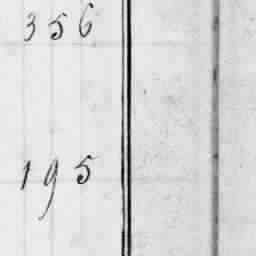 356
195